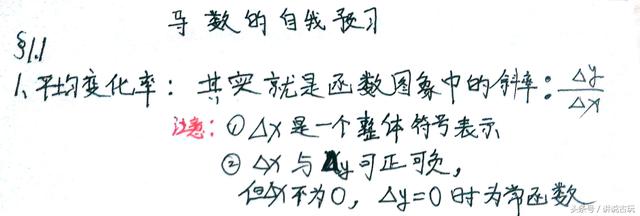 导数的自我预习
§1.1
1、平均变化率：其实就是函数图象中的斜率：Δy/Δx
注意：①Δx是一个整体符号表示
②Δx与Δy可正可负，
但Δx不为0，Δy=0时为常函数
头条号／讲说古玩